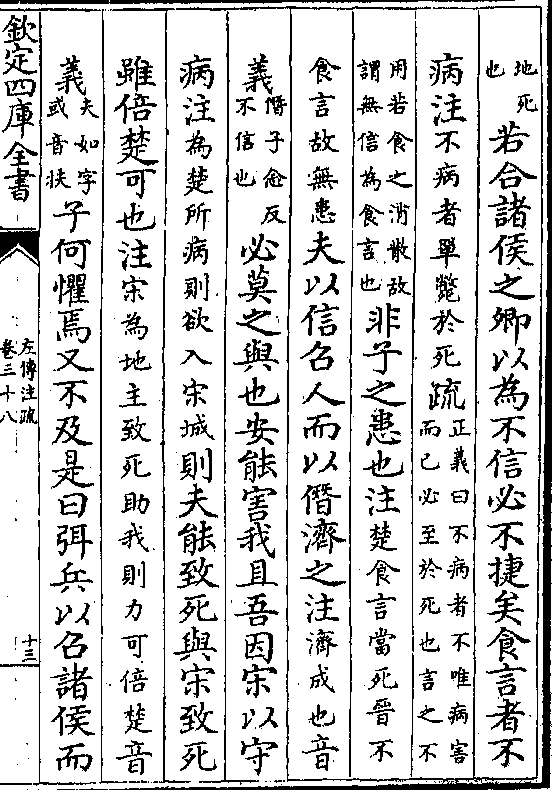 地死
也
若合諸侯之卿以為不信必不捷矣食言者不
病注不病者單斃於死疏
正義曰不病者不唯病害
而已必至於死也言之不
用若食之消散故
謂無信為食言也
非子之患也注楚食言當死晉不
食言故無患夫以信召人而以僭濟之注濟成也音
義
僭子念反
不信也
必莫之與也安能害我且吾因宋以守
病注為楚所病則欲入宋城則夫能致死與宋致死
雖倍楚可也注宋為地主致死助我則力可倍楚音
義
夫如字
或音扶
子何懼焉又不及是曰弭兵以召諸侯而
欽定四庫全書
左傳注疏
卷三十八
十三